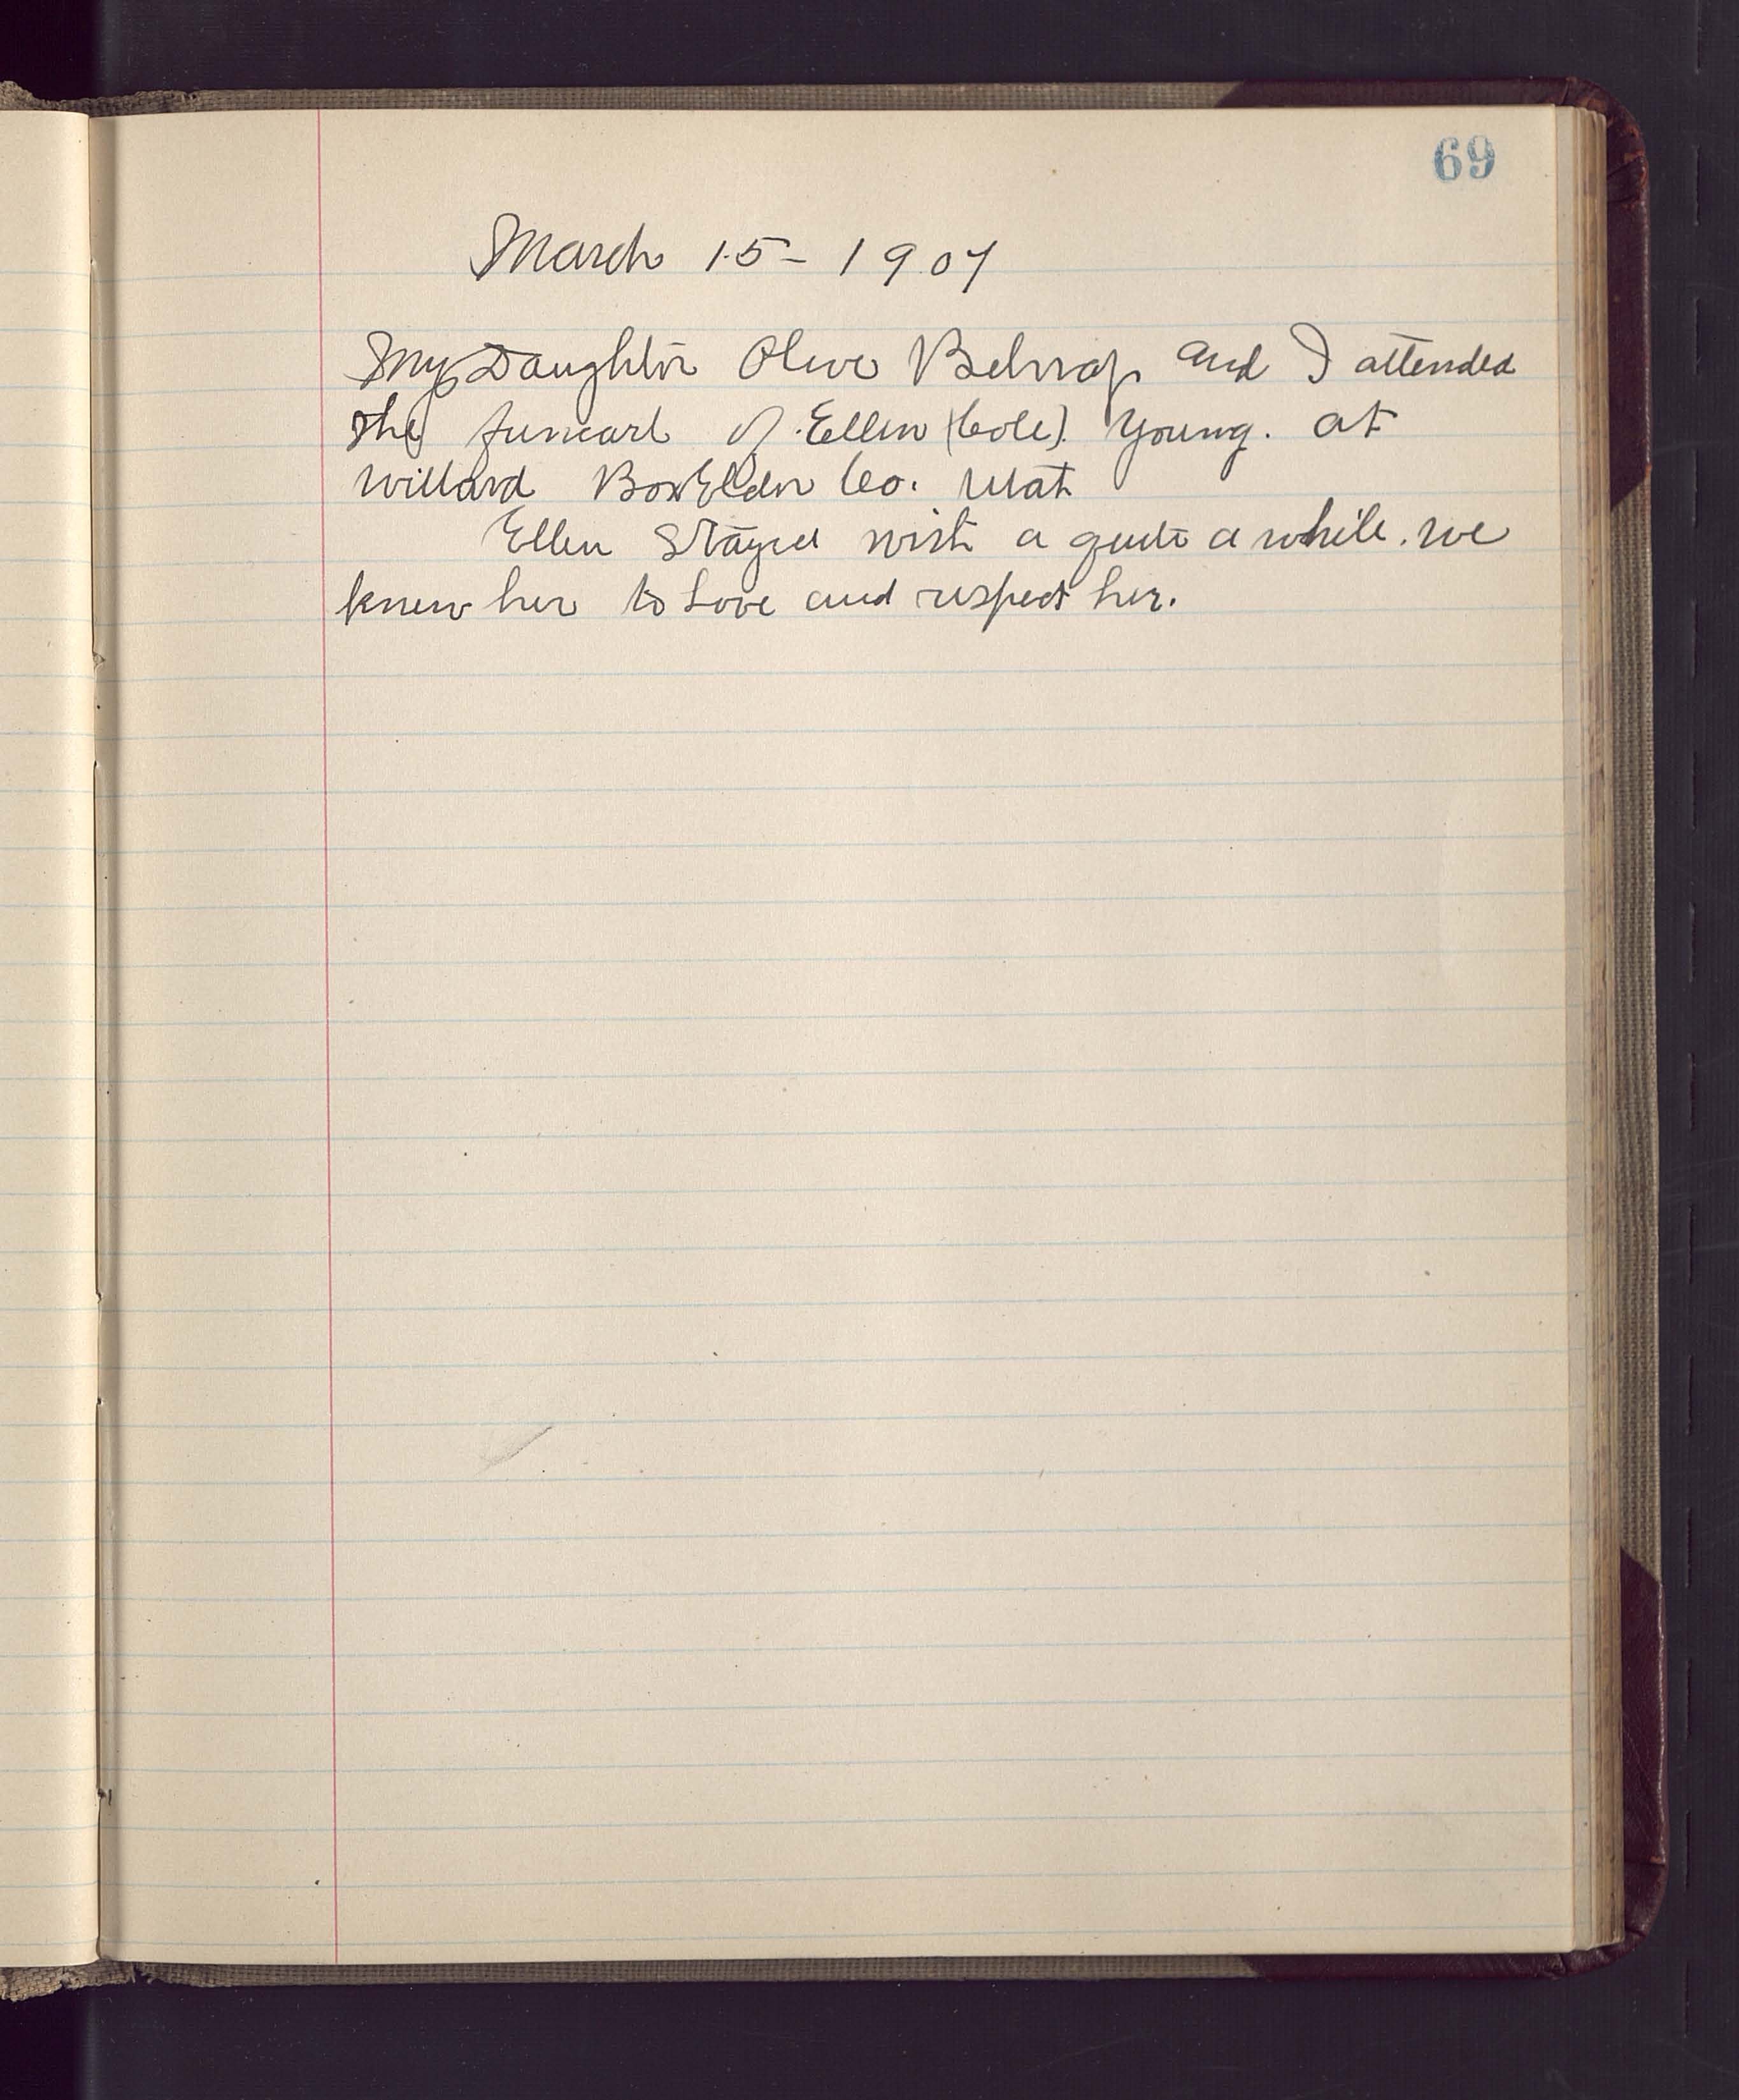 69
March 15 - 1907
My Daughter Olive Belnap and I attended
the funearl of Ellen (Cole). Young. at
Willard Box Elder Co. Utah
Ellen Stayed with a quite a while. we
knew her to Love and respect her.